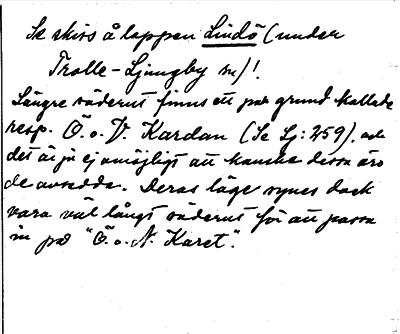 Se skiss å lappen Lindö (under
Trolle-Ljungby sn)!
Längre söderut finns ett par grund kallade
resp. Ö. o. V. Kardan (Se Lj: 259), och
det är ju ej omöjligt att kanske dessa äro
de avsedda. Deras läge synes dock
vara väl långt söderut för att passa
in på "Ö. o. N. Karet".